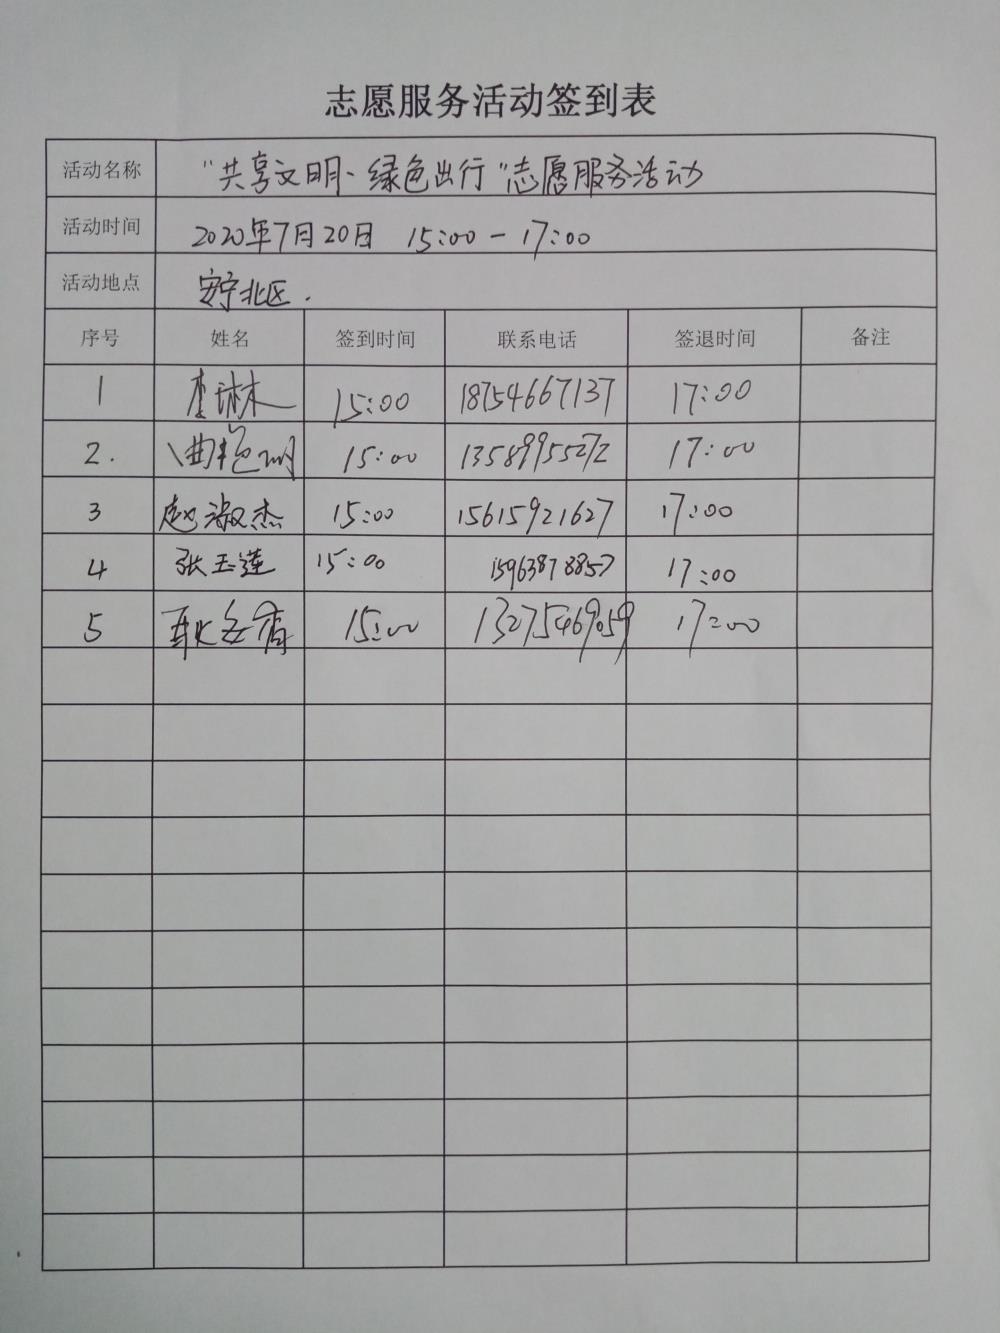 志愿服务活动签到表
活动名称 "共享文明、绿色出行"志愿服务活动
活动时间 2020年7月20日 15:00-17:00
活动地点 安宁北区.
序号 姓名 签到时间 联系电话 签退时间 备注
1 李琳 15:00 18754667137 17:00
2. 曲艳明 15:00 13589955272 17:00
3 赵淑杰 15:00 15615921627 17:00
4 张玉莲 15:00 15963878857 17:00
5 耿 15:00 13275469059 17:00